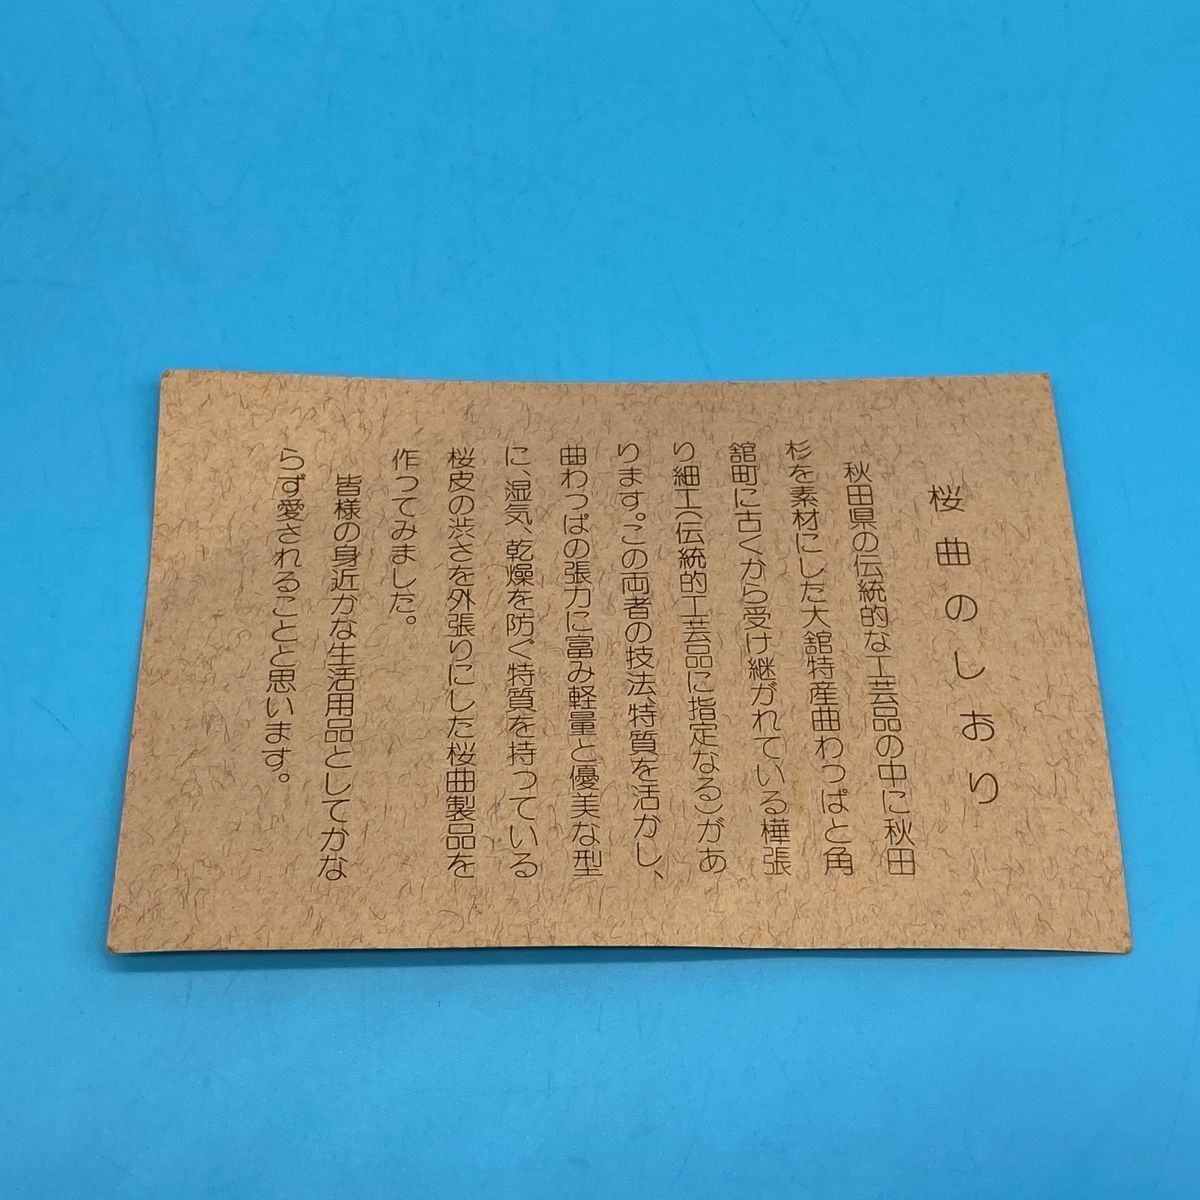 桜曲のしおり
秋田県の伝統的な工芸品の中に秋田
杉を素材にした大舘特産曲わっぱと角
舘町に古くから受け継がれている樺張
り細工（伝統的工芸品に指定なる）があ
ります。この両者の技法、特質を活かし、
曲わっぱの張力に富み軽量と優美な型
に、湿気、乾燥を防ぐ特質を持っている
桜皮の渋さを外張りにした桜曲製品を
作ってみました。
皆様の身近かな生活用品としてかな
らず愛されることと思います。